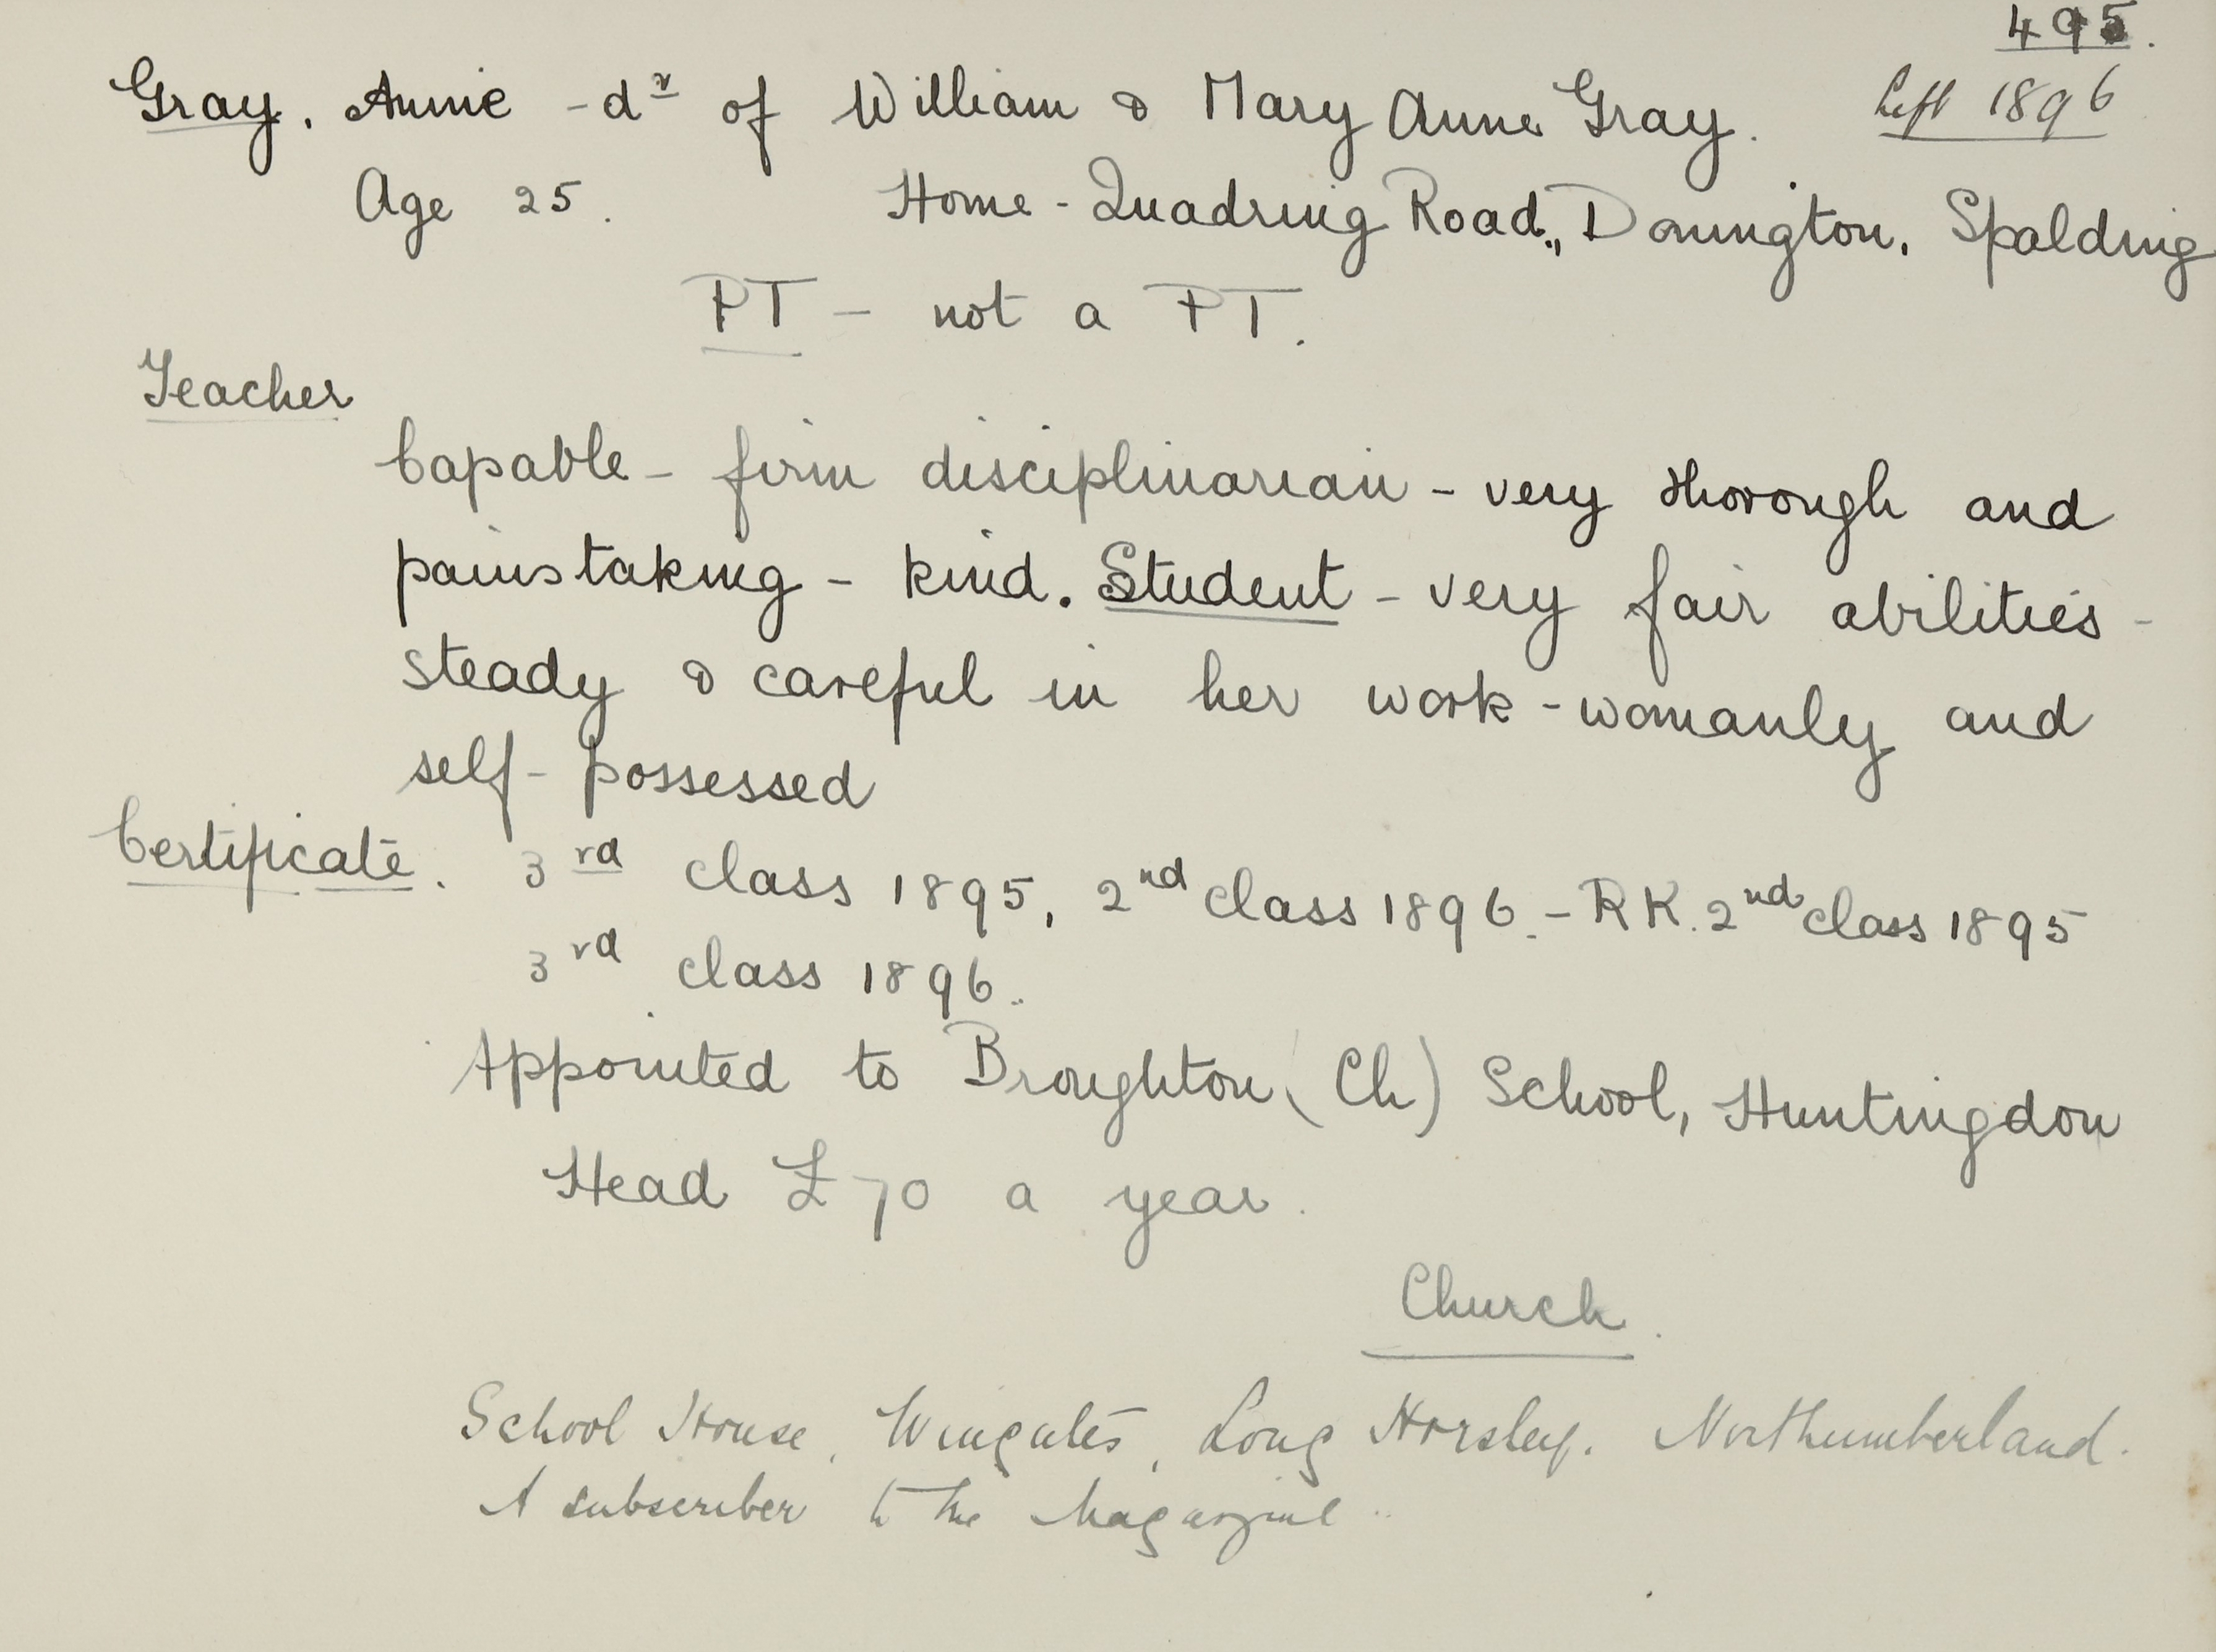 495.
Gray. Annie - dr of William & Mary Anne Gray. Left 1896
Age 25. Home - Quadring Road, Donington, Spalding
PT - not a PT.
Teacher
Capable - firm disciplinarian - very thorough and
painstaking - kind. Student - very fair abilities -
steady & careful in her work - womanly and
self-possessed
Certificate. 3rd class 1895, 2nd class 1896. - RK. 2nd class 1895
3rd class 1896.
Appointed to Broughton (Ch) School, Huntingdon
Head £70 a year.
Church.
School House, Wingates, Long Horsley. Northumberland.
A subscriber to the Magazine.